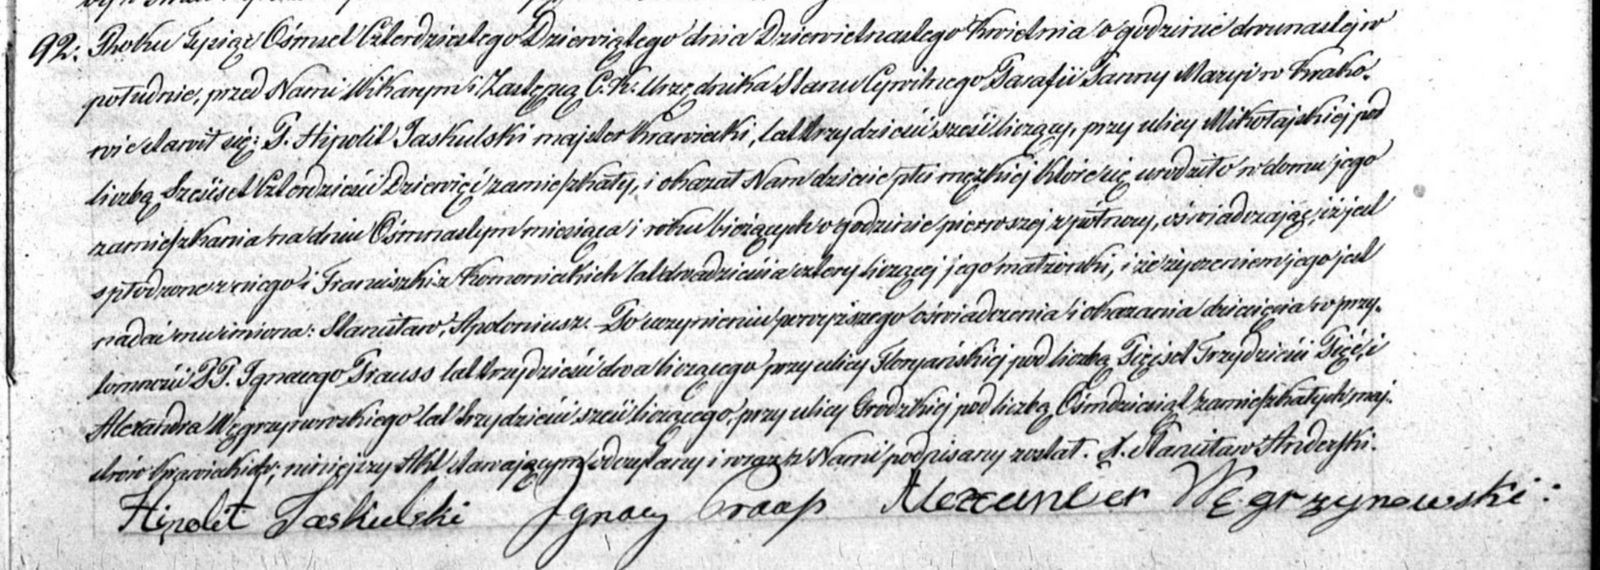 92. Roku Tysiąc Ośmset Czterdziestego Dziewiątego dnia Dziewietnastego Kwietnia o godzinie dwunastej w
południe, przed Nami Wikarym i Zastępcą C. K. Urzędnika Stanu Cywilnego Parafii Panny Maryi w Krako-
wie stawił się: P. Hipolit Jaskulski majster krawiecki, lat trzydzieści sześć liczący, przy ulicy Mikołajskiej pod
liczbą Sześćset Czterdzieści Dziewięć zamieszkały, i okazał Nam dziecie płci męzkiej które się urodziło w domu jego
zamieszkania na dniu Ośmnastym miesiąca i roku bieżących o godzinie pierwszej z północy, oświadczając, iż jest
spłodzone z niego i Franciszki z Komornickich lat dwadzieścia cztery liczącej jego małżonki, i że życzeniem jego jest
nadać mu imiona: Stanisław, Apoloniusz. Po uczynieniu powyższego oświadczenia i okazania dziecięcia w przy-
tomności PP. Ignacego Prauss lat trzydzieści dwa liczącego przy ulicy Floryańskiej pod liczbą Pięćset Trzydzieści Pięć, i
Alexandra Węgrzynowskiego lat trzydzieści sześć liczącego, przy ulicy Grodzkiej pod liczbą Ośmdziesiąt zamieszkałych maj-
strów krawieckich; niniejszy Akt stawającym odczytany i wraz z Nami podpisany został. X. Stanisław
Hipolit Jaskulski Ignacy Alexander Węgrzynowski